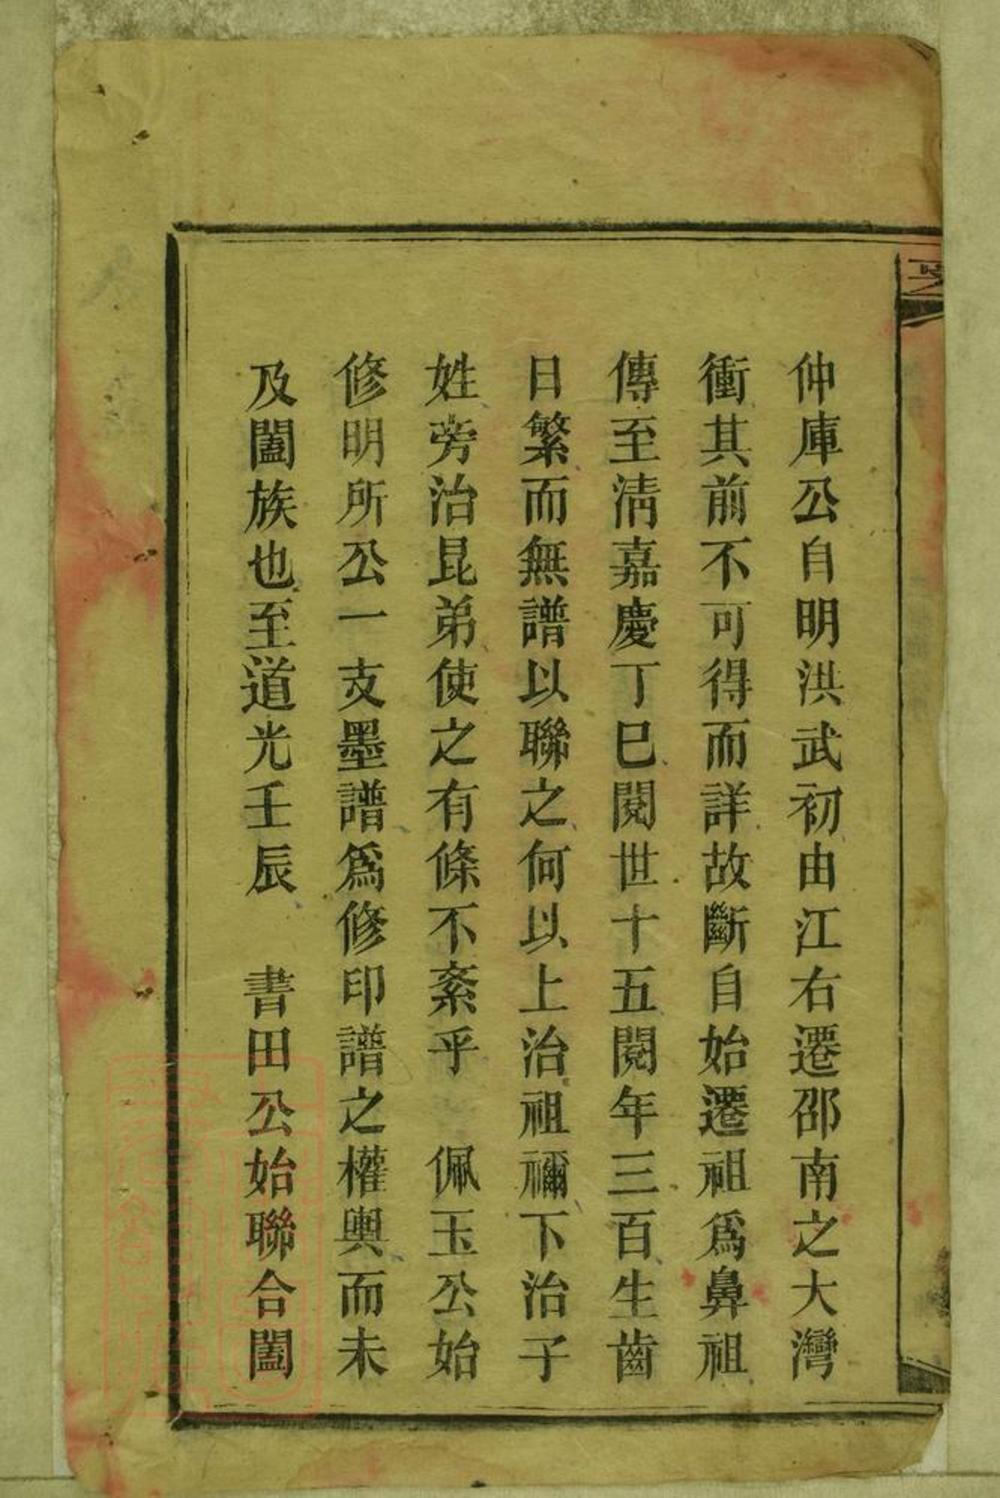 仲庫公自明洪武初由江右遷邵南之大灣
衝其前不可得而詳故斷自始遷祖爲鼻祖
傳至清嘉慶丁巳閱世十五閱年三百生齒
日繁而無譜以聯之何以上治祖禰下治子
姓旁治昆弟使之有條不紊乎　佩玉公始
修明所公一支墨譜爲修印譜之權輿而未
及闔族也至道光壬辰　書田公始聯合闔